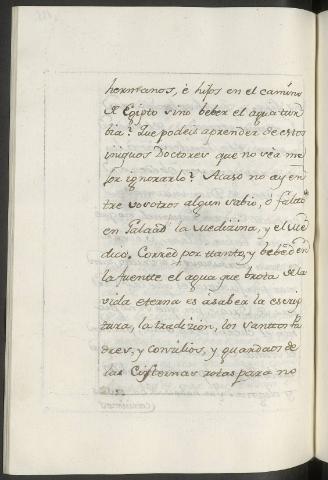 hermanos, è hijos en el camino
de Egipto sino beber el agua tur
bia? Que podeis aprender de estos
iniquos Doctores que no sèa me
jor ignorarlo? Acaso no ay en
tre vosotros algun sabio, ó falta
en Galaad la medizina, y el me
dico. Corred por ttanto, y bebed en
la fuentte el agua que brota de la
vida eterna es asaber la escrip
tura, la tradizion, los santtos Pa
dres, y conzilios, y guardaos de
las Cisternas rotas para no